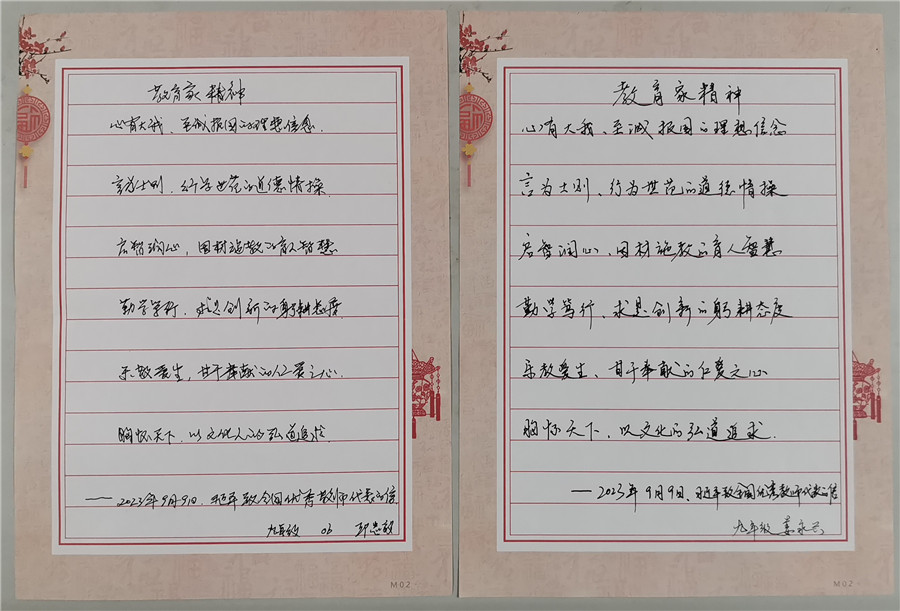 教育家精神
心有大我、至诚报国的理想信念.
言为士则、行为世范的道德情操.
启智润心、因材施教的育人智慧
勤学笃行、求是创新的躬耕态度
乐教爱生、甘于奉献的仁爱之心.
胸怀天下、以文化人的弘道追求.
——2023年9月9日,习近平致全国优秀教师代表的信
九年级 03
M02
教育家精神
心有大我、至诚报国的理想信念
言为士则、行为世范的道德情操
启智润心、因材施教的育人智慧
勤学笃行、求是创新的躬耕态度
乐教爱生、甘于奉献的仁爱之心
胸怀天下、以文化的弘道追求.
——2023年9月9日、习近平致全国优秀教师代表的信
九年级 姜永
M02